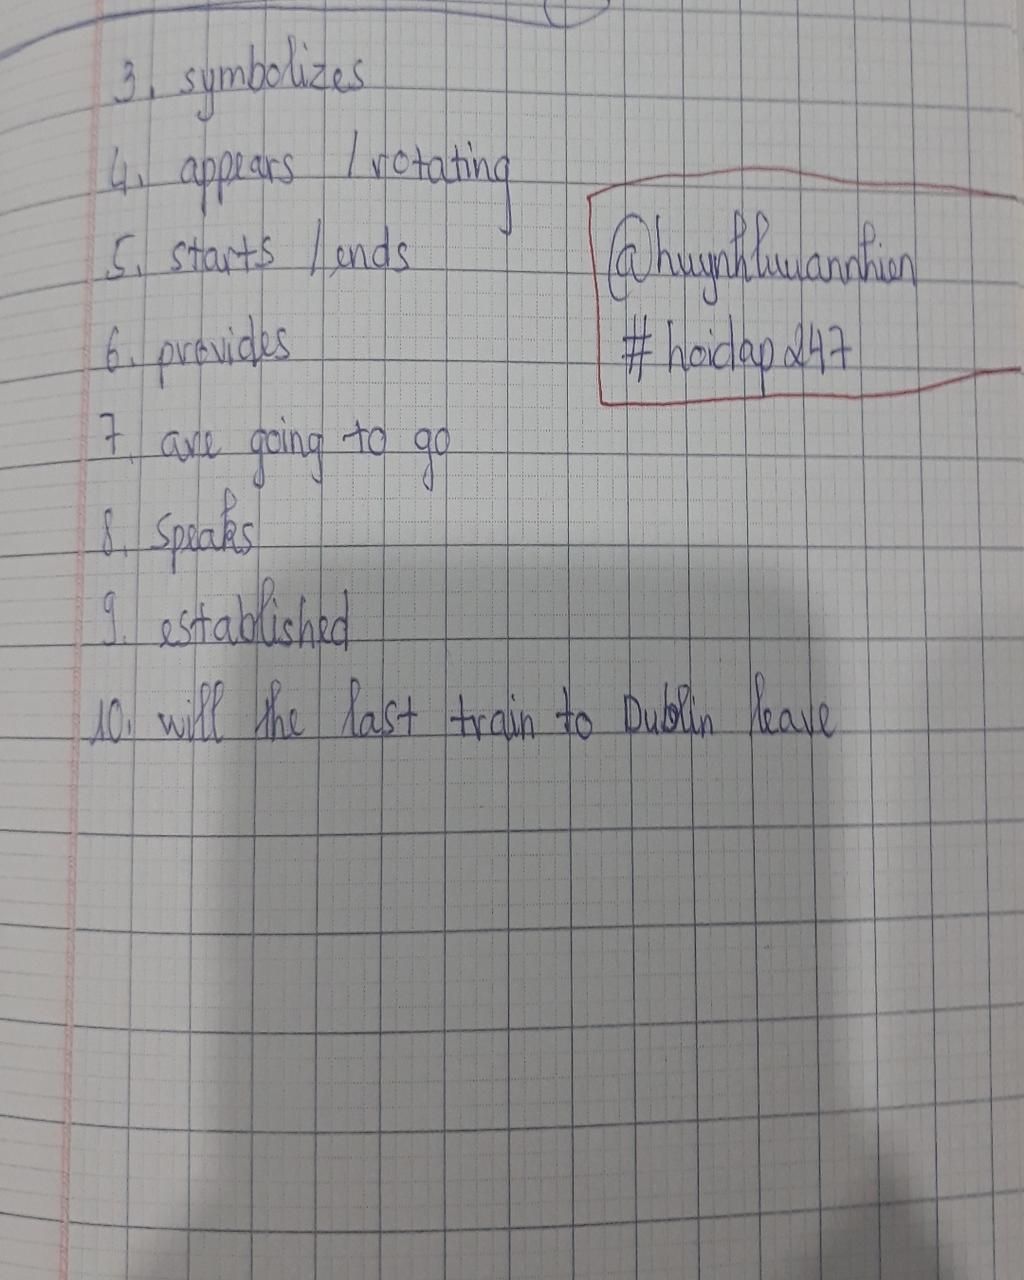 3. symbolizes
4. appears / rotating
5. starts / ends
6. provides
7. are going to go
8. speaks
9. established
10. will the last train to Dublin leave
@huynhluuannhien
#hoidap247